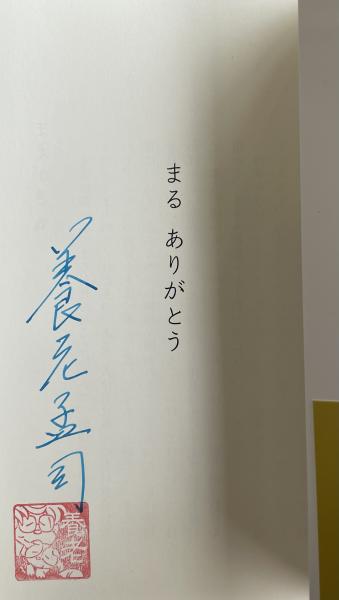 まる ありがとう
養老孟司
養老